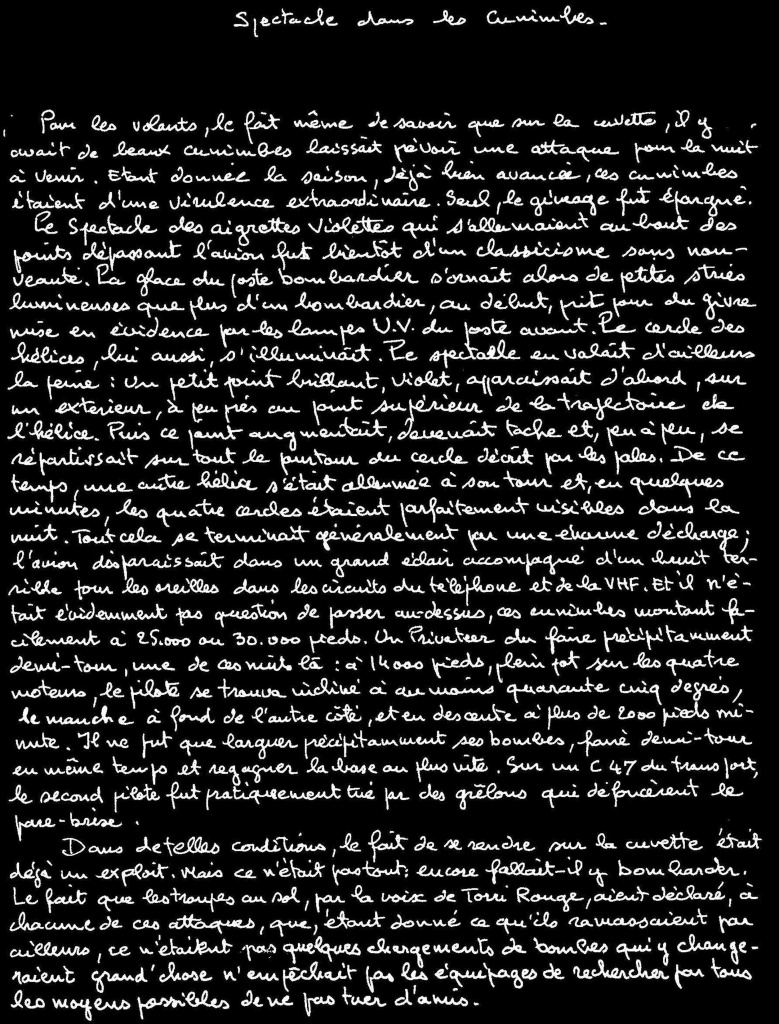 Spectacle dans les Cunimbes.
Pour les volants, le fait même de savoir que sur la cuvette, il y
avait de beaux cunimbes laissait prévoir une attaque pour la nuit
à venir. Etant donnée la saison, déjà bien avancée, ces cunimbes
étaient d'une virulence extraordinaire. Seul, le givrage fut épargné.
Le Spectacle des aigrettes violettes qui s'allumaient au bout des
points dépassant l'avion fut bientôt d'un classicisme sans nou-
veauté. La glace du poste bombardier s'ornait alors de petites stries
lumineuses que plus d'un bombardier, au début, prit pour du givre
mise en évidence par les lampes U.V. du poste avant. Le cercle des
hélices, lui aussi, s'illuminait. Le spectacle en valait d'ailleurs
la peine : Un petit point brillant, violet, apparaissait d'abord, sur
un extérieur, à peu près au point supérieur de la trajectoire de
l'hélice. Puis ce point augmentait, devenait tache et, peu à peu, se
répartissait sur tout le pourtour du cercle décrit par les pales. De ce
temps, une autre hélice s'était allumée à son tour et, en quelques
minutes, les quatre cercles étaient parfaitement visibles dans la
nuit. Tout cela se terminait généralement par une énorme décharge;
l'avion disparaissait dans un grand éclair accompagné d'un bruit ter-
rible pour les oreilles dans les circuits du téléphone et de la VHF. Et il n'é-
tait évidemment pas question de passer au-dessus, ces cunimbes montant fa-
cilement à 25.000 ou 30.000 pieds. Un Privateer du faire précipitamment
demi-tour, une de ces nuits là : à 14000 pieds, plein pot sur les quatre
moteurs, le pilote se trouva incliné à au moins quarante cinq degrés,
le manche à fond de l'autre côté, et en descente à plus de 2000 pieds mi-
nute. Il ne put que larguer précipitamment ses bombes, faire demi-tour
en même temps et regagner la base au plus vite. Sur un C 47 du transport,
le second pilote fut pratiquement tué par des grêlons qui défoncèrent le
pare-brise.
Dans de telles conditions, le fait de se rendre sur la cuvette était
déjà un exploit. Mais ce n'était pas tout: encore fallait-il y bombarder.
Le fait que les troupes au sol, par la voix de Torri Rouge, aient déclaré, à
chacune de ces attaques, que, étant donné ce qu'ils ramassaient par
ailleurs, ce n'étaient pas quelques chargements de bombes qui y change-
raient grand'chose n'empêchait pas les équipages de rechercher par tous
les moyens possibles de ne pas tuer d'amis.